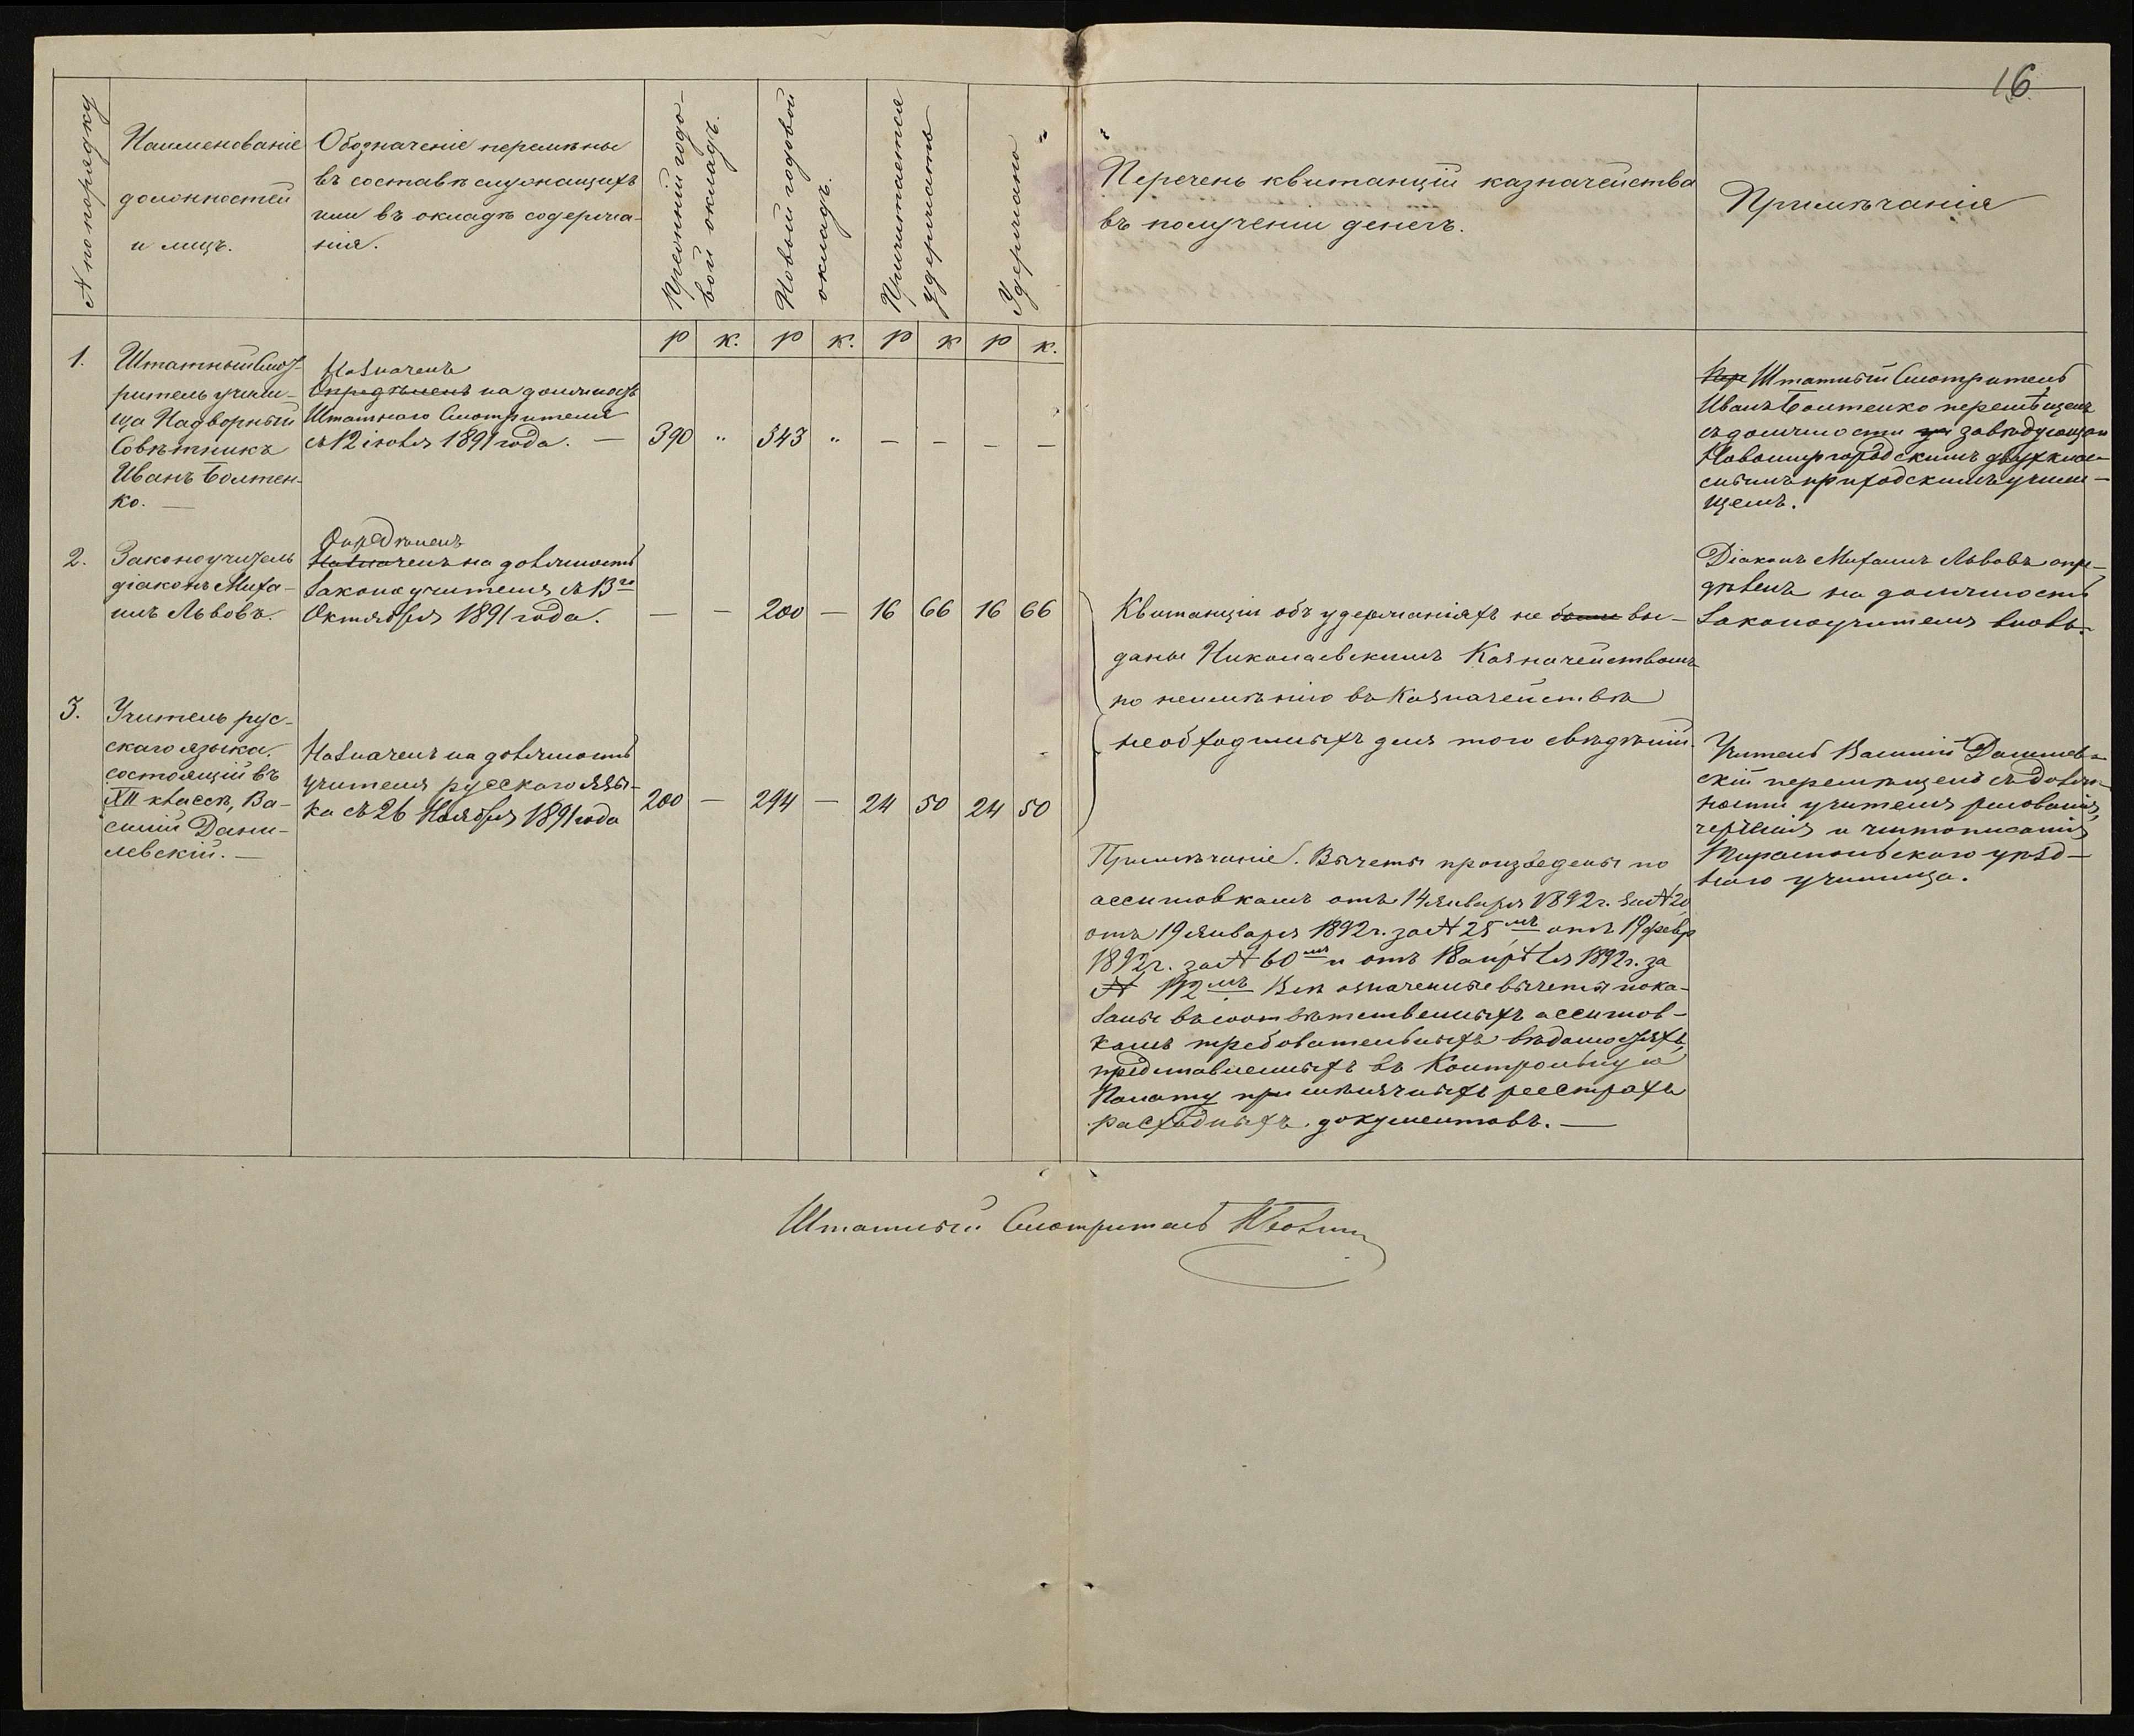 16
№ по порядку
Наименованіе
должностей
и лицъ.
Обозначеніе перемѣны
въ составѣ служащихъ
или въ окладѣ содержа-
нія.
Прежній годо-
вой окладъ.
Новый годовой
окладъ.
Причитается
удержать
Удержано
Перечень квитанцій казначейства
въ полученіи денегъ.
Примѣчанія
р к. р к. р к р к.
1.
Штатный Смот-
ритель учили-
ща Надворный
Совѣтникъ
Иванъ Болтен-
ко. —
Назначенъ
Опредѣленъ на должность
Штатнаго Смотрителя
съ 12 іюля 1891 года. —
390 " 543 " — — — —
Пер Штатный Смотритель
Иванъ Болтенко перемѣщенъ
съ должности за завѣдующаго
Новомиргородскимъ двухклас-
снымъ приходскимъ учили-
щемъ.
2.
Законоучитель
діаконъ Миха-
илъ Львовъ.
Опредѣленъ
Назначенъ на должность
Законоучителя съ 13го
Октября 1891 года.
— — 200 — 16 66 16 66
Квитанціи объ удержаніяхъ не были вы-
даны Николаевскимъ Казначействомъ
по неимѣнію въ Казначействѣ
необходимыхъ для того свѣдѣній.
Діаконъ Михаилъ Львовъ опре-
дѣленъ на должность
Законоучителя вновь.
3.
Учитель рус-
скаго языка,
состоящій въ
XII классѣ, Ва-
силій Дани-
левскій. —
Назначенъ на должность
учителя русскаго язы-
ка съ 26 Ноября 1891 года
200 — 294 — 24 50 24 50
Учитель Василій Данилев-
скій перемѣщенъ съ долж-
ности учителя рисованія,
черченія и чистописанія
Тираспольскаго уѣзд-
наго училища.
Примѣчаніе. Вычеты произведены по
ассигновкамъ отъ 14 января 1892 г. за № 20
отъ 19 января 1892 г. за № 25мъ, отъ 19 февр
1892 г. за № 60мъ и отъ 18 апрѣля 1892 г. за
№ 112мъ. Всѣ означенные вычеты пока-
заны въ соотвѣтственныхъ ассигнов-
камъ требовательныхъ вѣдомостяхъ,
представленныхъ въ Контрольную
Палату при мѣсячныхъ реестрахъ
расходныхъ документовъ. —
Штатный Смотритель